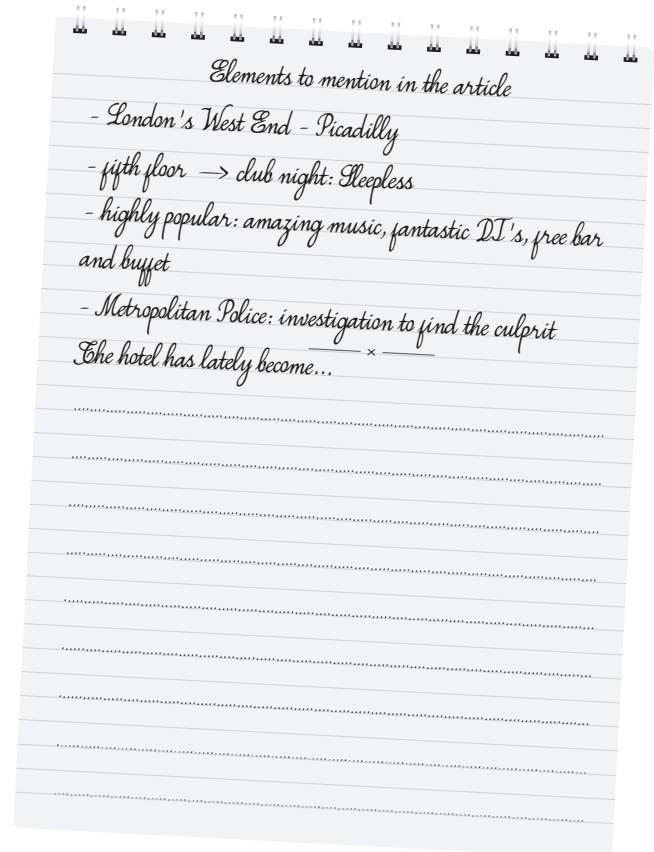 Elements to mention in the article
- London's West End - Picadilly
- fifth floor → club night: Sleepless
- highly popular: amazing music, fantastic DJ's, free bar
and buffet
- Metropolitan Police: investigation to find the culprit
The hotel has lately become...